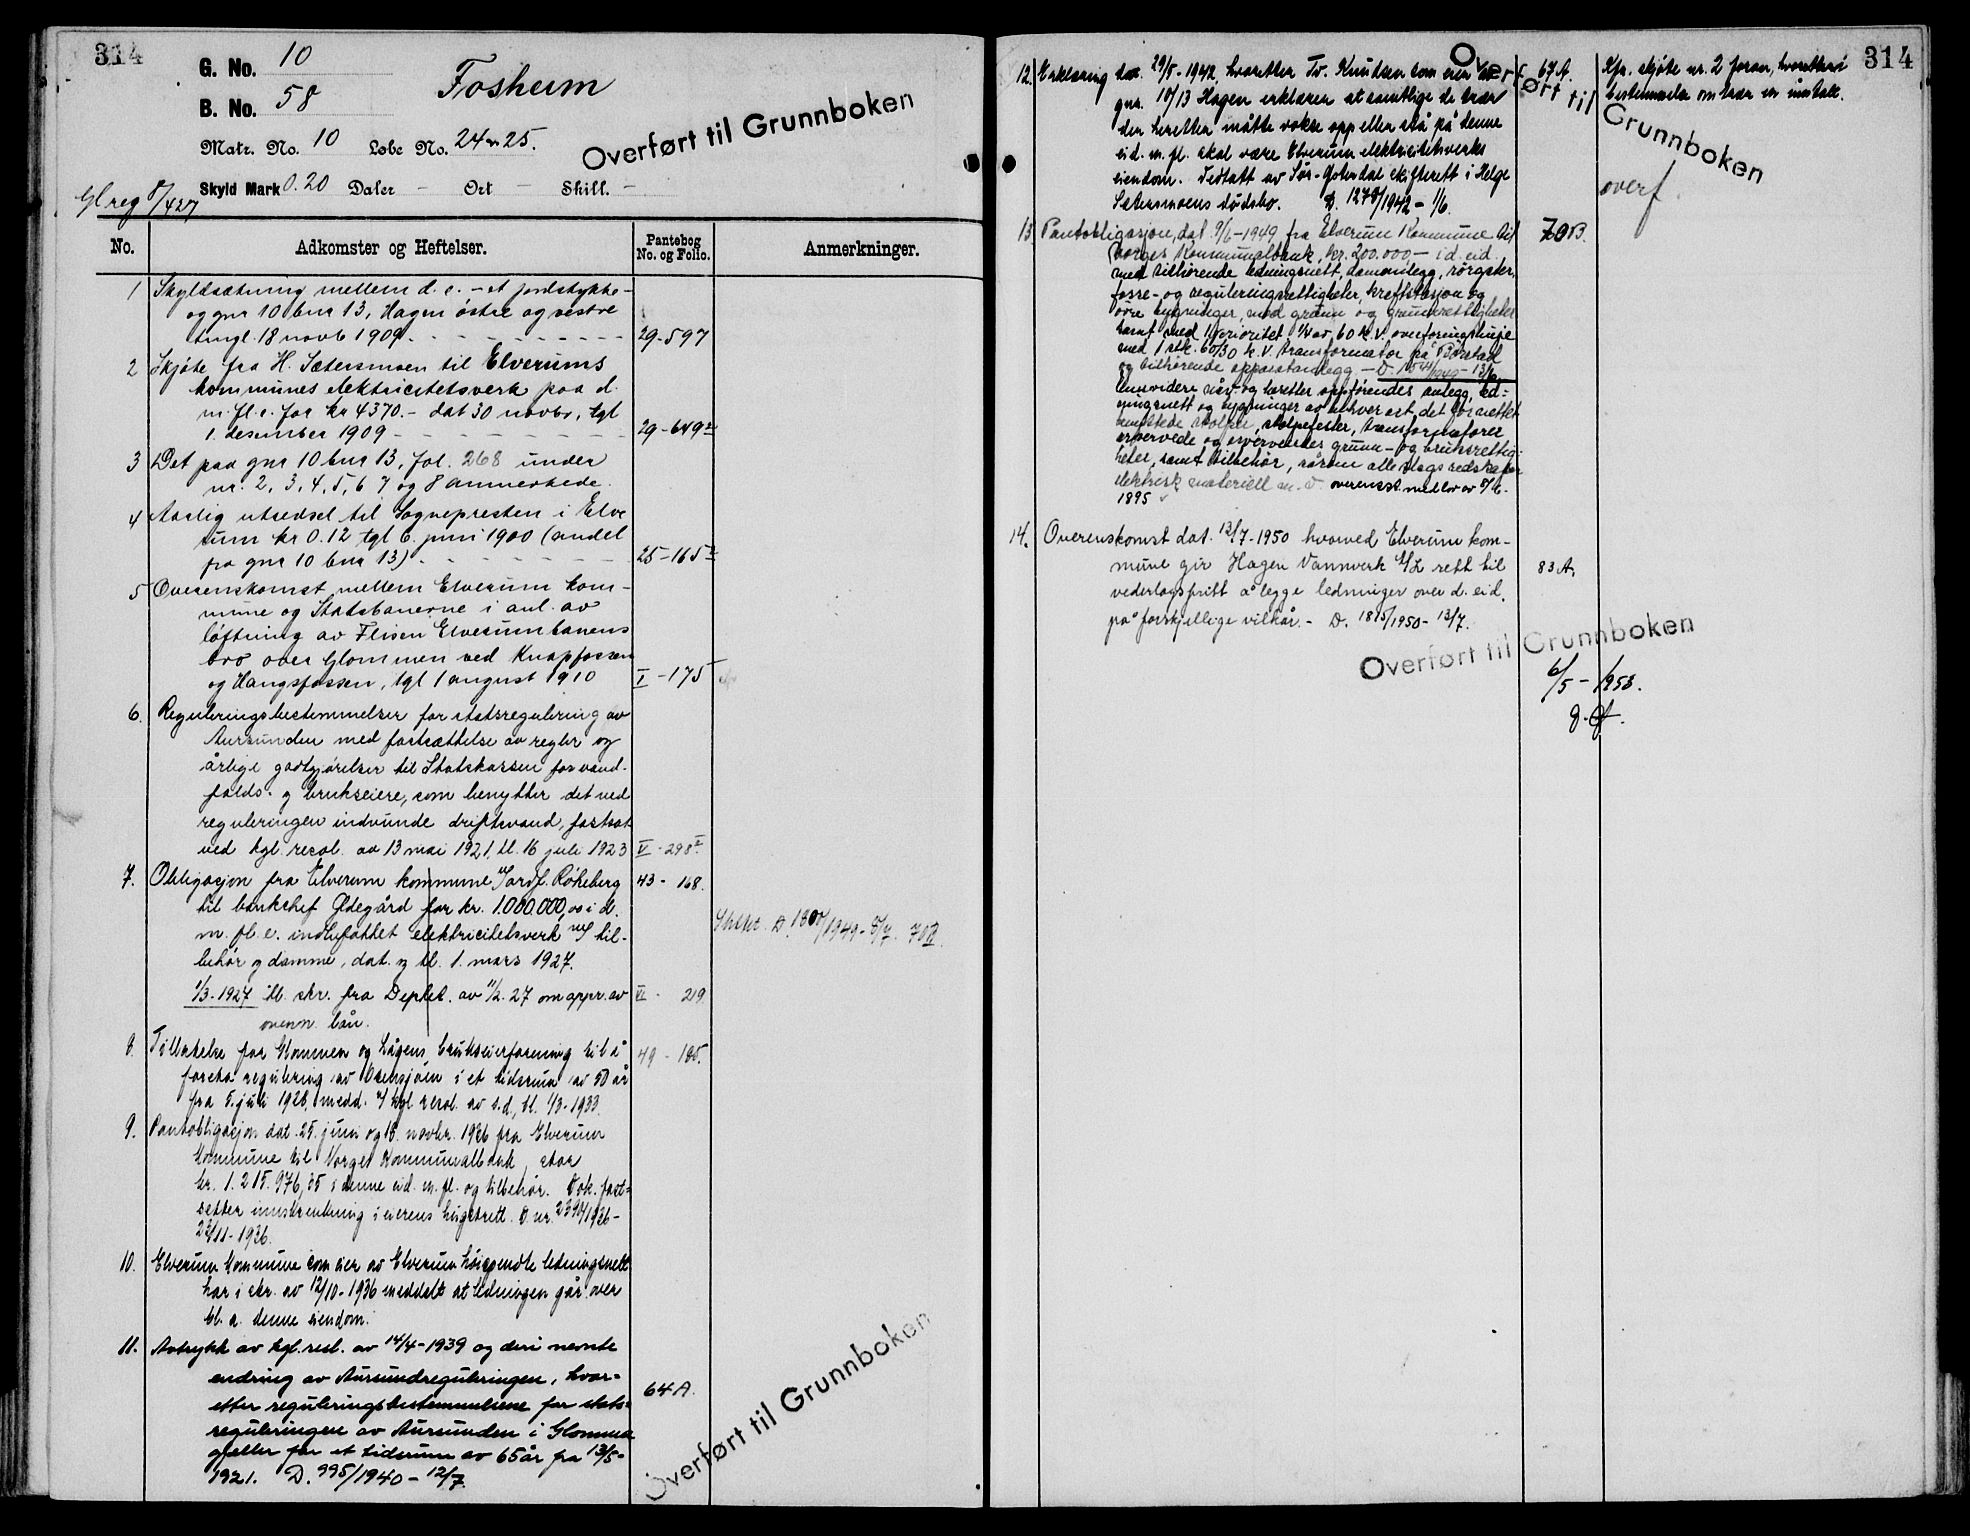 314
G. No. 10
B. No. 58
Fosheim
Matr. No. 10 Løbe No. 24 n 25.
Overført til Grunnboken
Skyld Mark 0.20 Daler – Ort – Skill. –
Gl reg 8/427
No. Adkomster og Heftelser. Pantebog No. og Folio. Anmerkninger.
1 Skyldsætning mellem d. e. – et jordstykke –
og gnr 10 bnr 13, Hagen østre og vestre
tingl. 18 novb 1909. 29-597
2 Skjøte fra H. Sætersmoen til Elverums
kommunes elektricitetsverk paa d.
m. fl. e. for kr 4370.– dat 30 novbr, tgl
1. desember 1909 – 29-649
3 Det paa gnr 10 bnr 13, fol. 268 under
nr. 2, 3, 4, 5, 6 7 og 8 anmerkede.
4 Aarlig utsedsel til Sognepresten i Elve
rum kr 0.12 tgl 6. juni 1900 (andel
fra gnr 10 bnr 13). 25-165
5 Overenskomst mellem Elverum kom-
mune og Statsbanerne i anl. av
løftning av Flisen Elverumbanens
bro over Glommen ved Knapfossen
og Hangsfossen, tgl 1 august 1910 I-175
6. Reguleringsbestemmelser for statsregulering av
Aursunden med fastsættelse av regler og
årlige godtgjørelser til Statskassen for vand-
falds- og brukseiere, som benytter det ved
reguleringen indvundne driftsvand, fastsat
ved kgl. resol. av 13 mai 1921, tl. 16 juli 1923 V-298
7. Obligasjon fra Elverum kommune v/ordf. Røkeberg 43-168.
til banksjef Ødegård for kr. 1.000.000,00 i d.
m. fl. e. indbefattet elektricitetsverk m/ til-
behør og damme, dat. og tl. 1. mars 1927.
Slettet D. 1807/1949-8/7. 70B.
1/3-1927 tl. skr. fra Deptet. av 11/2. 27 om appr. av VI-219
ovenn. lån.
8. Tillatelse for Glommen og Lågens brukseierforening til å 49-185.
foreta regulering av Osensjøen i et tidsrum av 50 år
fra 5. juli 1926, medd. v/ kgl. resol. av s.d., tl. 1/3-1933.
9. Pantobligasjon dat. 25. juni og 16. novbr. 1936 fra Elverum
kommune til Norges Kommunalbank, stor
kr. 1.215.976,05 i denne eid. m. fl. og tilbehør. Dok. fast-
setter innskrenkning i eierens hugstrett. D. nr. 2390/1936-
23/11-1936.
10. Elverum kommune som eier av Elverum høispendte ledningsnett
har i skr. av 12/10-1936 meddelt at ledningen går over
bl. a. denne eiendom.
11. Avtrykk av kgl. resl. av 14/4-1939 og deri nevnte
endring av Aursundreguleringen, hvor-
etter reguleringsbestemmelsene for stats- 64A.
reguleringen av Aursunden i Glomma
gjelder for et tidsrum av 65 år fra 13/5-
1921. D. 995/1940-12/7.
Overført til Grunnboken
314
12. Erklæring dat. 29/5-1942, hvoretter Tr. Knudsen som eier av 67A.
gnr. 10/13 Hagen erklærer at samtlige de trær
der heretter måtte vokse opp eller stå på denne
eid. m. fl. skal være Elverum elektricitetsverks
eiendom. Vedtatt av Sør-Østerdal skifterett i Helge
Sætersmoens dødsbo. D. 1278/1942-1/6.
Kfr. skjøte nr. 2 foran, hvoretter
bestemmelse om trær er inntatt.
Overført til Grunnboken
overf.
13. Pantobligasjon, dat. 9/6-1949 fra Elverum Kommune til 70B.
Norges Kommunalbank, kr. 200.000,– i d. eid.
med tilhørende ledningsnett, damanlegg, rørgater,
fosse- og reguleringsrettigheter, kraftstasjon og
øvre bygninger, med grunn og grunnrettigheter
samt med 1 prioritet 1/4 av 60 k.V. overføringslinje
med 1 stk. 60/30 k.V. transformator på
og tilhørende apparatanlegg – D. 1949-13/6
Innvidere nåv- og heretter oppførendes anlegg, led-
ningsnett og bygninger av enhver art, det for nettet
stolper, stolpefester, transformatorer
ervervede og erververdes grunn- og bruksrettig-
heter, samt tilbehør, såsom alle slags redskaper
elektrisk materiell m. v. overensst. med lov av
1895
14. Overenskomst dat. 13/7-1950 hvorved Elverum kom-
mune gir Hagen Vannverk A/L rett til 83A.
vederlagsfritt å legge ledninger over d. eid.
på forskjellige vilkår. – D. 1815/1950-13/7.
Overført til Grunnboken
6/5-1958.